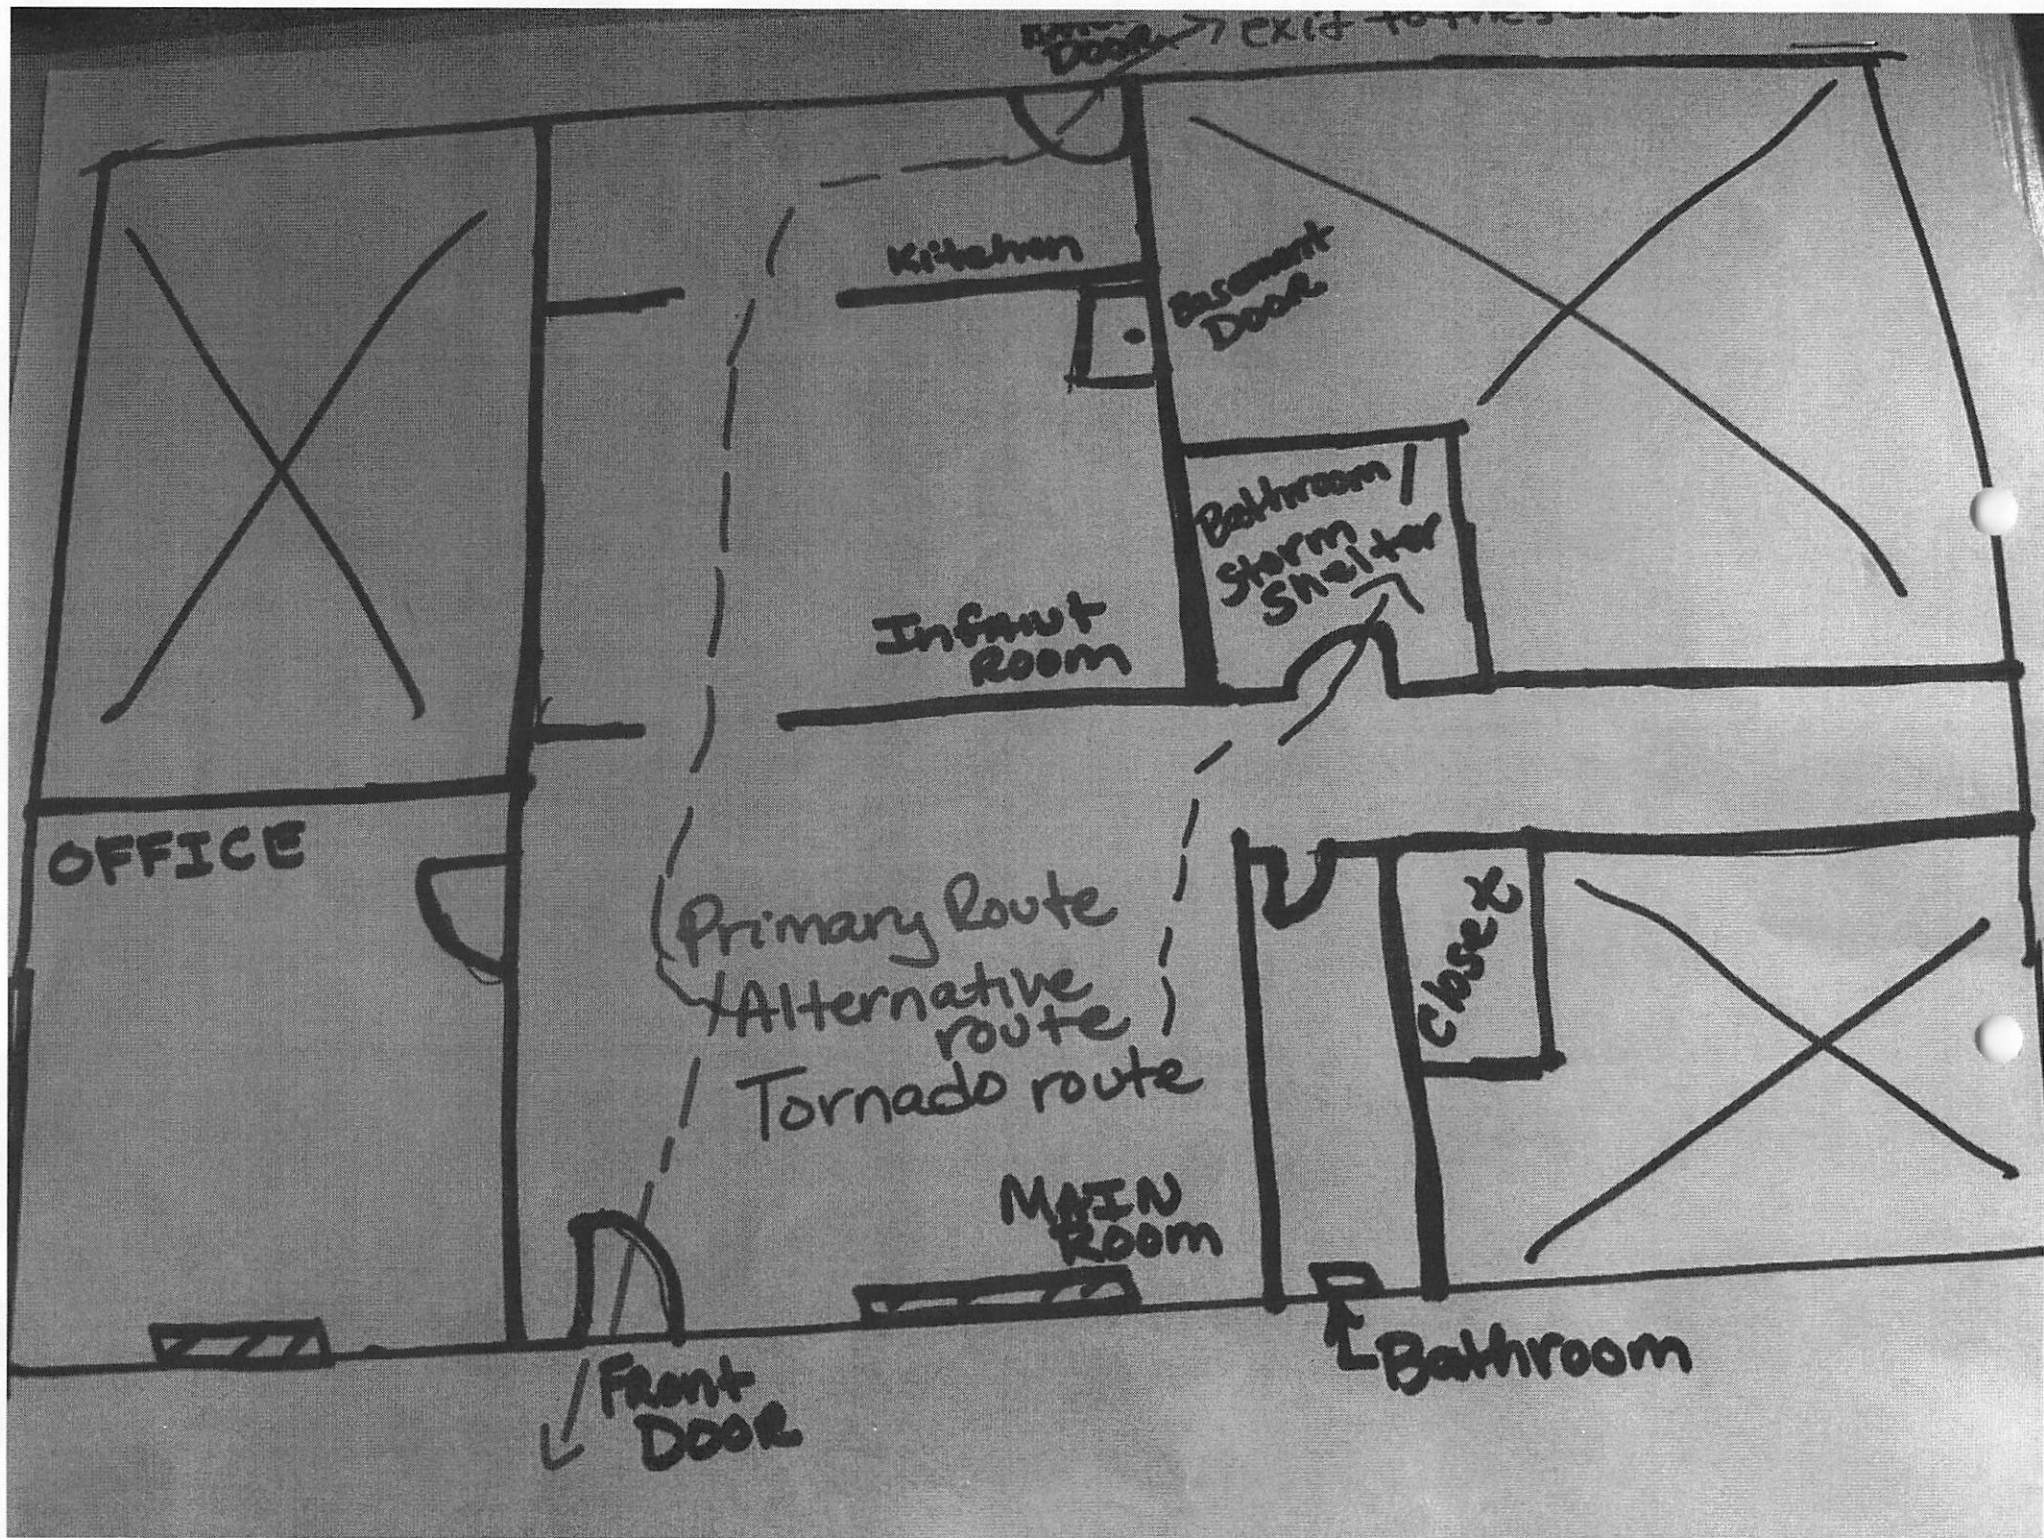 DOOR
exit to the
Kitchen
Basement
DOOR
Bathroom/
Storm
Shelter
Infant
Room
OFFICE
Primary Route
Alternative
route
Tornado route
Closet
MAIN
Room
Bathroom
Front
DOOR